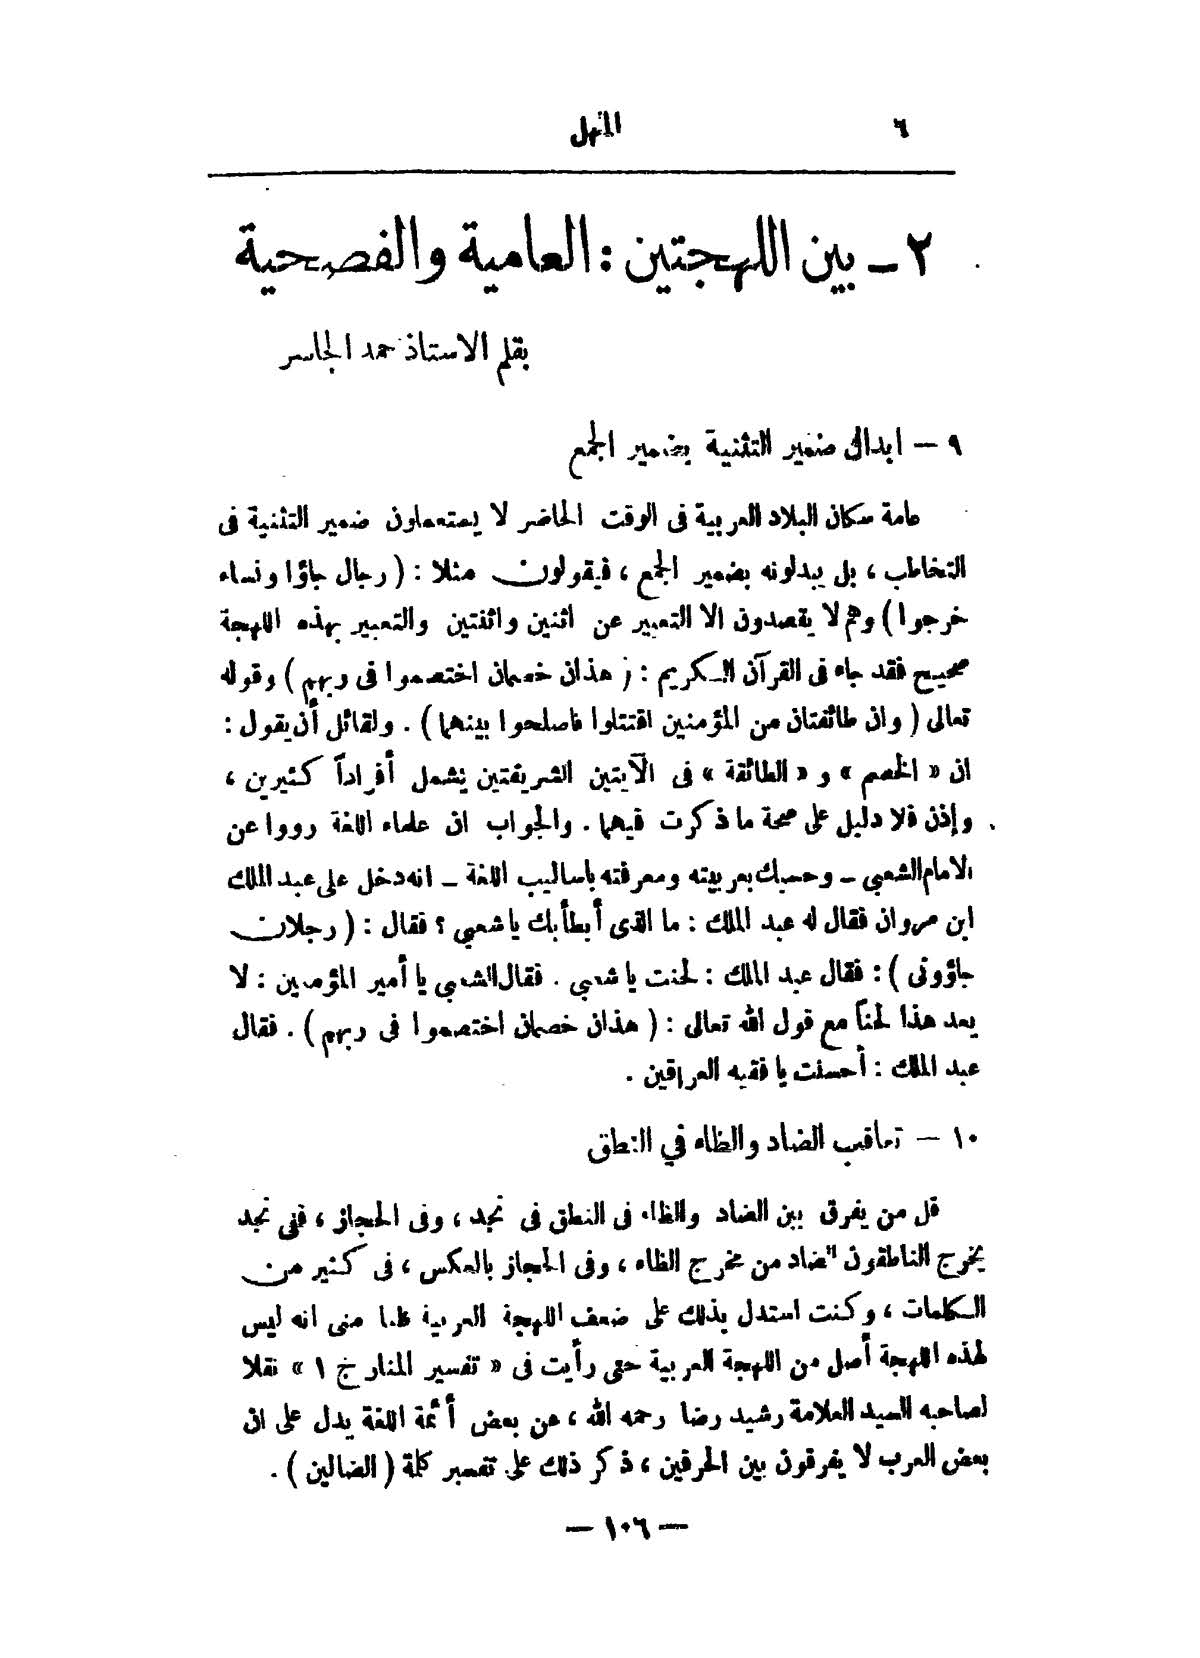 ٦
المنهل
٢ ـ بين اللهجتين : العامية والفصحية
بقلم الاستاذ حمد الجاسر
٩ — ابدال ضمير التثنية بضمير الجمع
عامة سكان البلاد العربية فى الوقت الحاضر لا يستعملون ضمير التثنية فى
التخاطب ، بل يبدلونه بضمير الجمع ، فيقولون مثلا : ( رجال جاؤا ونساء
خرجوا ) وهم لا يقصدون الا التعبير عن اثنين واثنتين والتعبير بهذه اللهجة
صحيح فقد جاء فى القرآن الكريم : ( هذان خصمان اختصموا فى ربهم ) وقوله
تعالى ( وان طائفتان من المؤمنين اقتتلوا فاصلحوا بينهما ) . ولقائل أن يقول :
ان « الخصم » و « الطائفة » فى الآيتين الشريفتين يشمل أفراداً كثيرين ،
وإذن فلا دليل على صحة ما ذكرت فيهما . والجواب ان علماء اللغة رووا عن
الامام الشعبي ـ وحسبك بعربيته ومعرفته باساليب اللغة ـ انه دخل على عبد الملك
ابن مروان فقال له عبد الملك : ما الذى أبطأ بك يا شعبي ؟ فقال : ( رجلان
جاؤونى ) : فقال عبد الملك : لحنت يا شعبي . فقال الشعبي يا أمير المؤمنين : لا
يعد هذا لحناً مع قول الله تعالى : ( هذان خصمان اختصموا فى ربهم ) . فقال
عبد الملك : أحسنت يا فقيه العراقين .
١٠ — تعاقب الضاد والظاء في النطق
قل من يفرق بين الضاد والظاء فى النطق فى نجد ، وفى الحجاز ، ففى نجد
يخرج الناطقون الضاد من مخرج الظاء ، وفى الحجاز بالعكس ، فى كثير من
الكلمات ، وكنت استدل بذلك على ضعف اللهجة العربية ظنا منى انه ليس
لهذه اللهجة أصل من اللهجة العربية حتى رأيت فى « تفسير المنار ج ١ » نقلا
لصاحبه السيد العلامة رشيد رضا رحمه الله ، عن بعض أئمة اللغة يدل على ان
بعض العرب لا يفرقون بين الحرفين ، ذكر ذلك على تفسير كلمة ( الضالين ) .
— ١٠٦ —